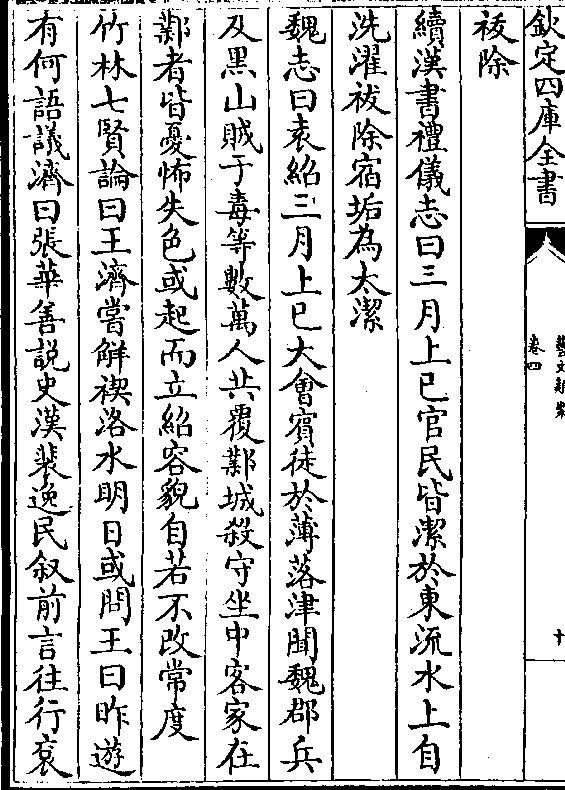 欽定四庫全書
藝文類聚
卷四
十
祓除
續漢書禮儀志曰三月上巳官民皆潔於東流水上自
洗濯祓除宿垢為太潔
魏志曰袁紹三月上巳大會賓徒於薄落津聞魏郡兵
及黑山賊于毒等數萬人共覆鄴城殺守坐中客家在
鄴者皆憂怖失色或起而立紹容貌自若不改常度
竹林七賢論曰王濟嘗解禊洛水明日或問王曰昨遊
有何語議濟曰張華善説史漢裴逸民叙前言往行袞